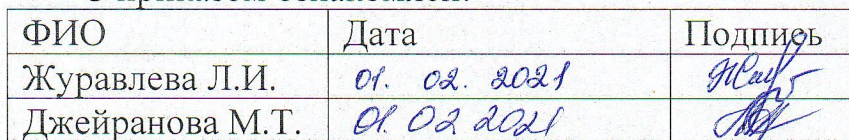 ФИО Дата Подпись
Журавлева Л.И. 01. 02. 2021
Джейранова М.Т. 01. 02 2021